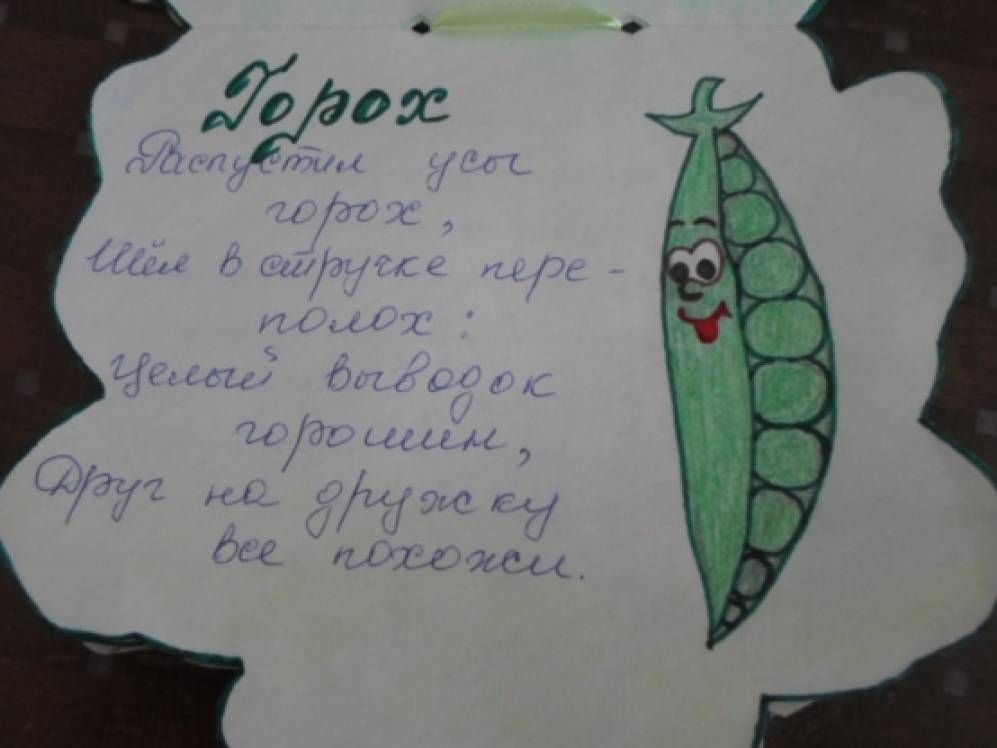 Горох
Распустил усы
горох,
Шёл в стручке пере-
полох:
Целый выводок
горошин,
Друг на дружку
все похожи.